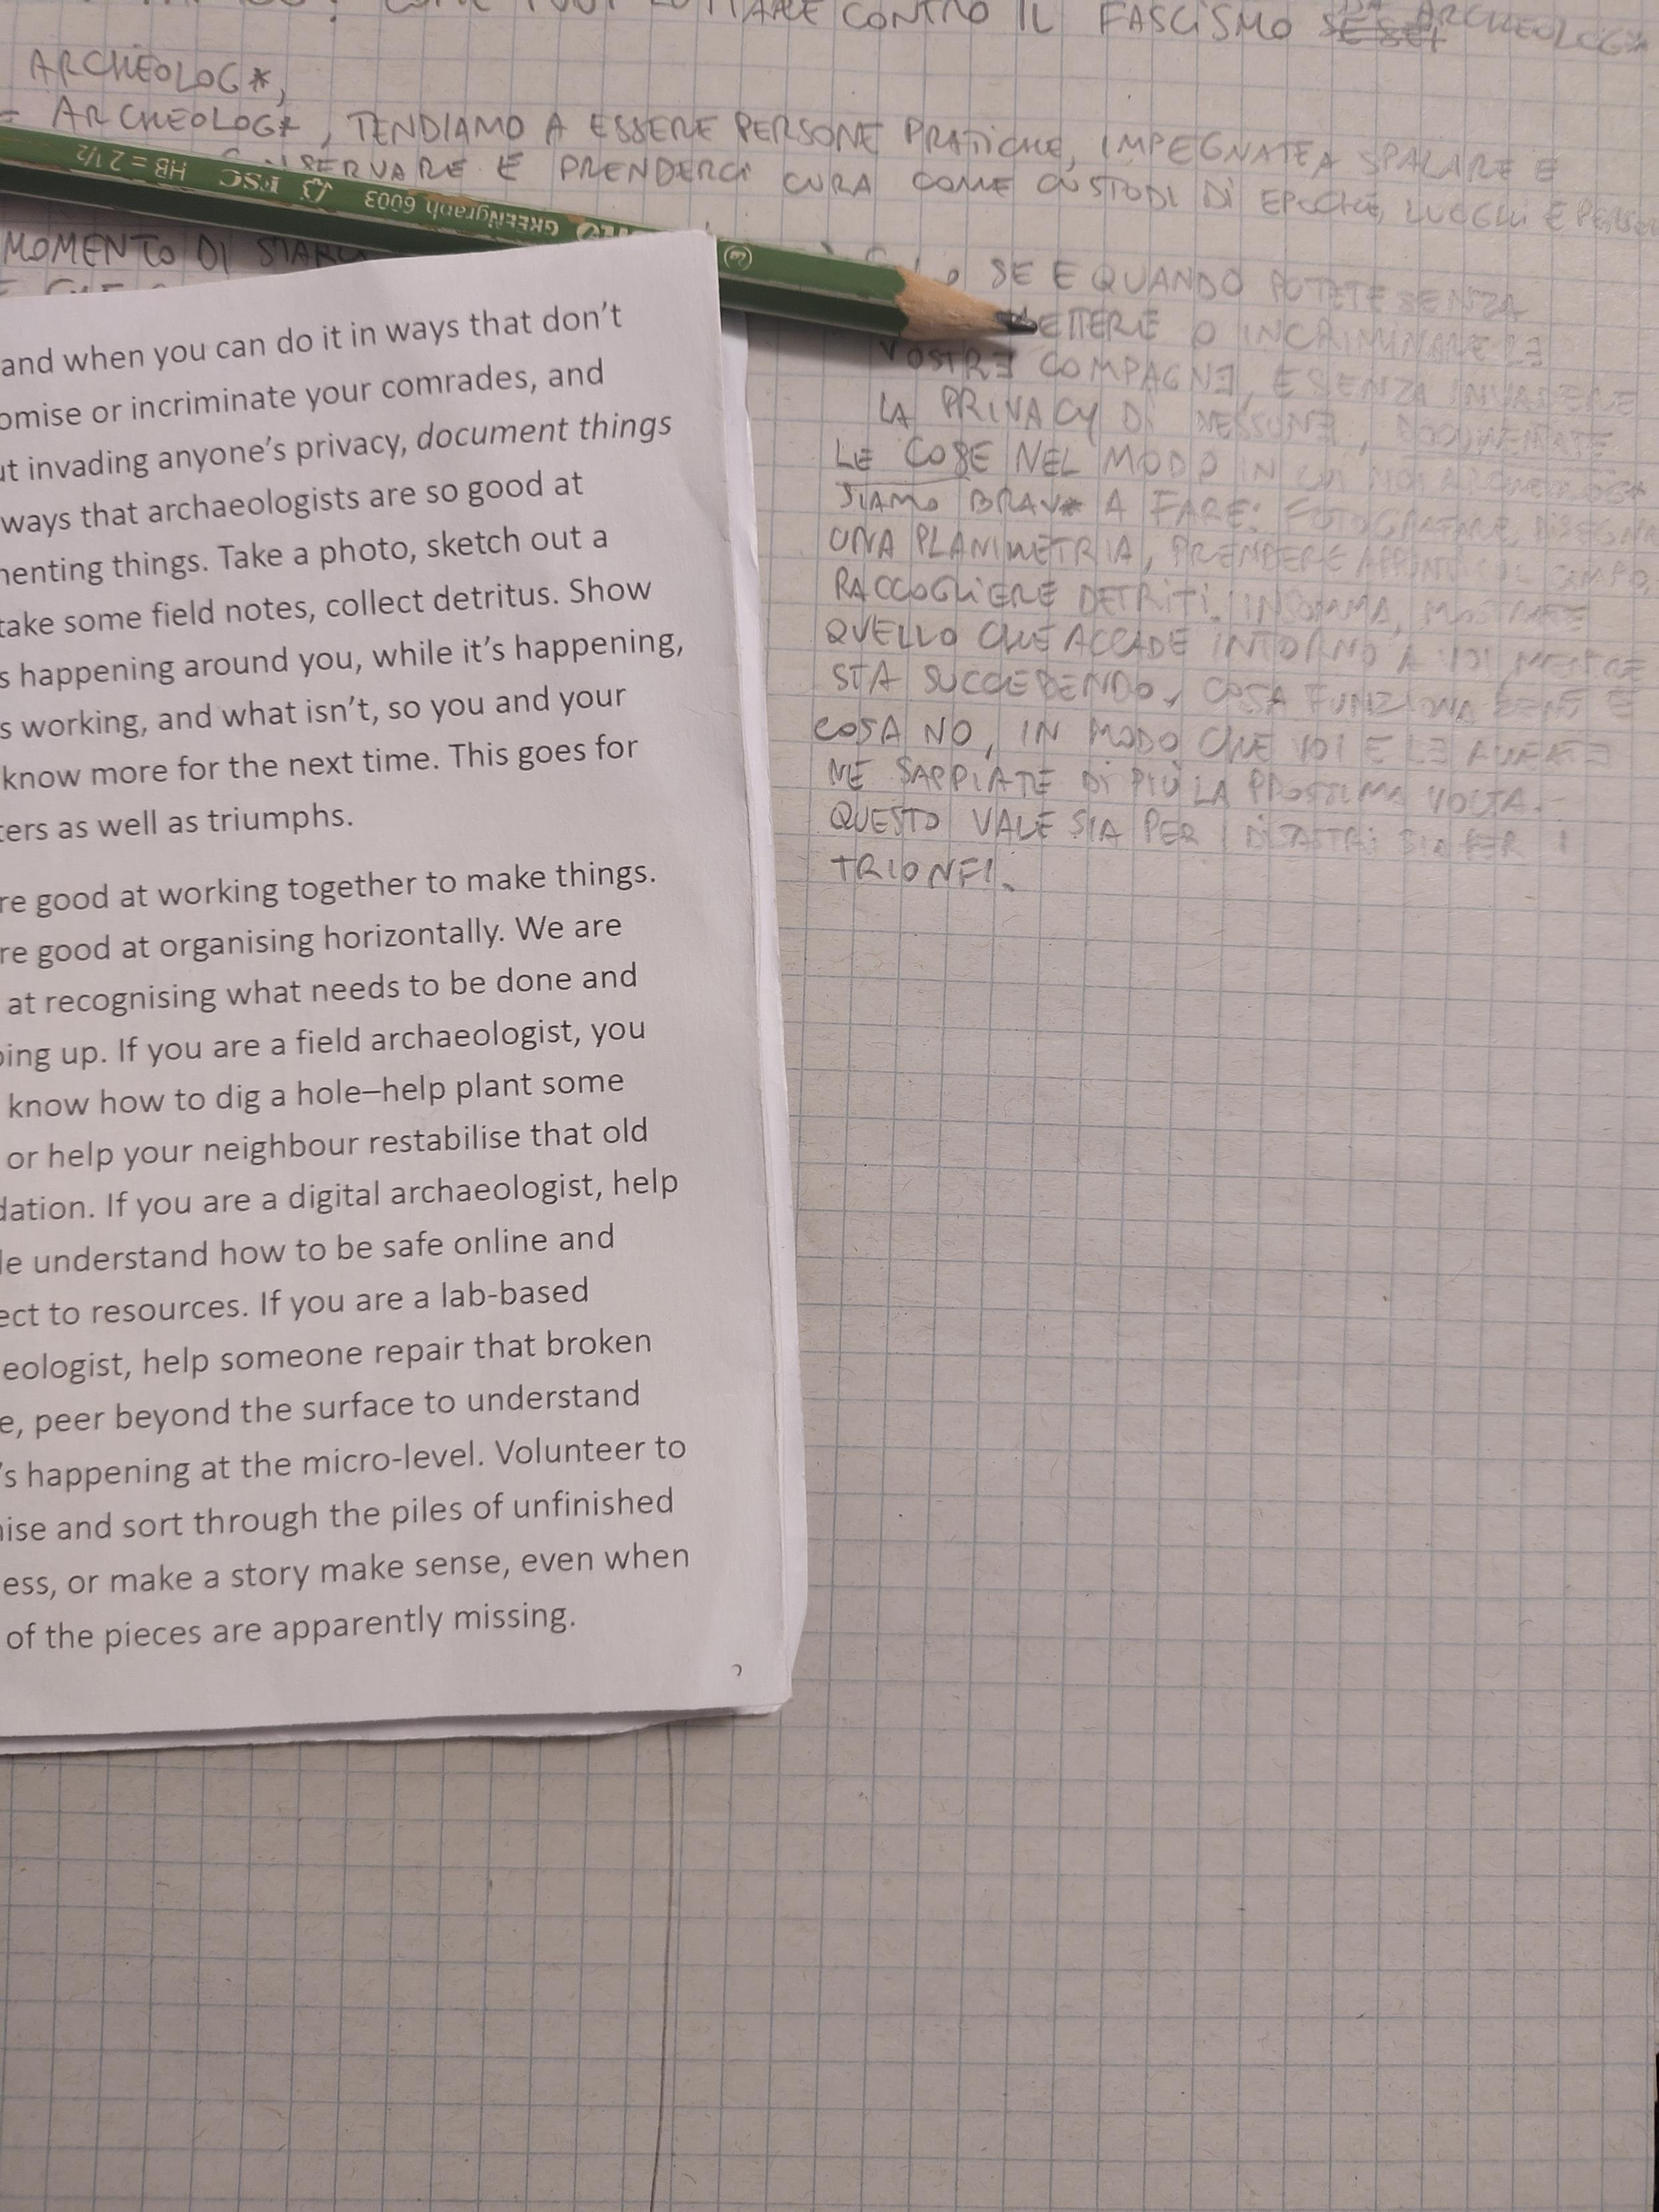 COME PUOI LOTTARE CONTRO IL FASCISMO SE SEI DA ARCHEOLOG*
ARCHEOLOG*,
ARCHEOLOG*, TENDIAMO A ESSERE PERSONE PRATICHE, IMPEGNATE A SPALARE E
SERVARE E PRENDERCI CURA COME CUSTODI DI EPOCHE, LUOGHI E
HB = 2 1/2 FSC GREENgraph 6003
MOMENTO DI
SE E QUANDO POTETE SENZA
METTERE O INCRIMINARE LE
VOSTRƎ COMPAGNƎ, E SENZA INVADERE
LA PRIVACY DI NESSUNƎ, DOCUMENTATE
LE COSE NEL MODO IN CUI NOI ARCHEOLOG*
SIAMO BRAV* A FARE: FOTOGRAFARE, DISEGNARE
UNA PLANIMETRIA, PRENDERE APPUNTI SUL CAMPO,
RACCOGLIERE DETRITI. INSOMMA, MOSTRATE
QUELLO CHE ACCADE INTORNO A VOI MENTRE
STA SUCCEDENDO, COSA FUNZIONA BENE E
COSA NO, IN MODO CHE VOI E LE
NE SAPPIATE DI PIÙ LA PROSSIMA VOLTA.
QUESTO VALE SIA PER I DISASTRI SIA PER I
TRIONFI.
and when you can do it in ways that don't
omise or incriminate your comrades, and
ut invading anyone's privacy, document things
ways that archaeologists are so good at
menting things. Take a photo, sketch out a
take some field notes, collect detritus. Show
s happening around you, while it's happening,
s working, and what isn't, so you and your
know more for the next time. This goes for
ters as well as triumphs.
re good at working together to make things.
re good at organising horizontally. We are
at recognising what needs to be done and
ping up. If you are a field archaeologist, you
know how to dig a hole–help plant some
or help your neighbour restabilise that old
dation. If you are a digital archaeologist, help
le understand how to be safe online and
ect to resources. If you are a lab-based
eologist, help someone repair that broken
e, peer beyond the surface to understand
's happening at the micro-level. Volunteer to
nise and sort through the piles of unfinished
ess, or make a story make sense, even when
of the pieces are apparently missing.